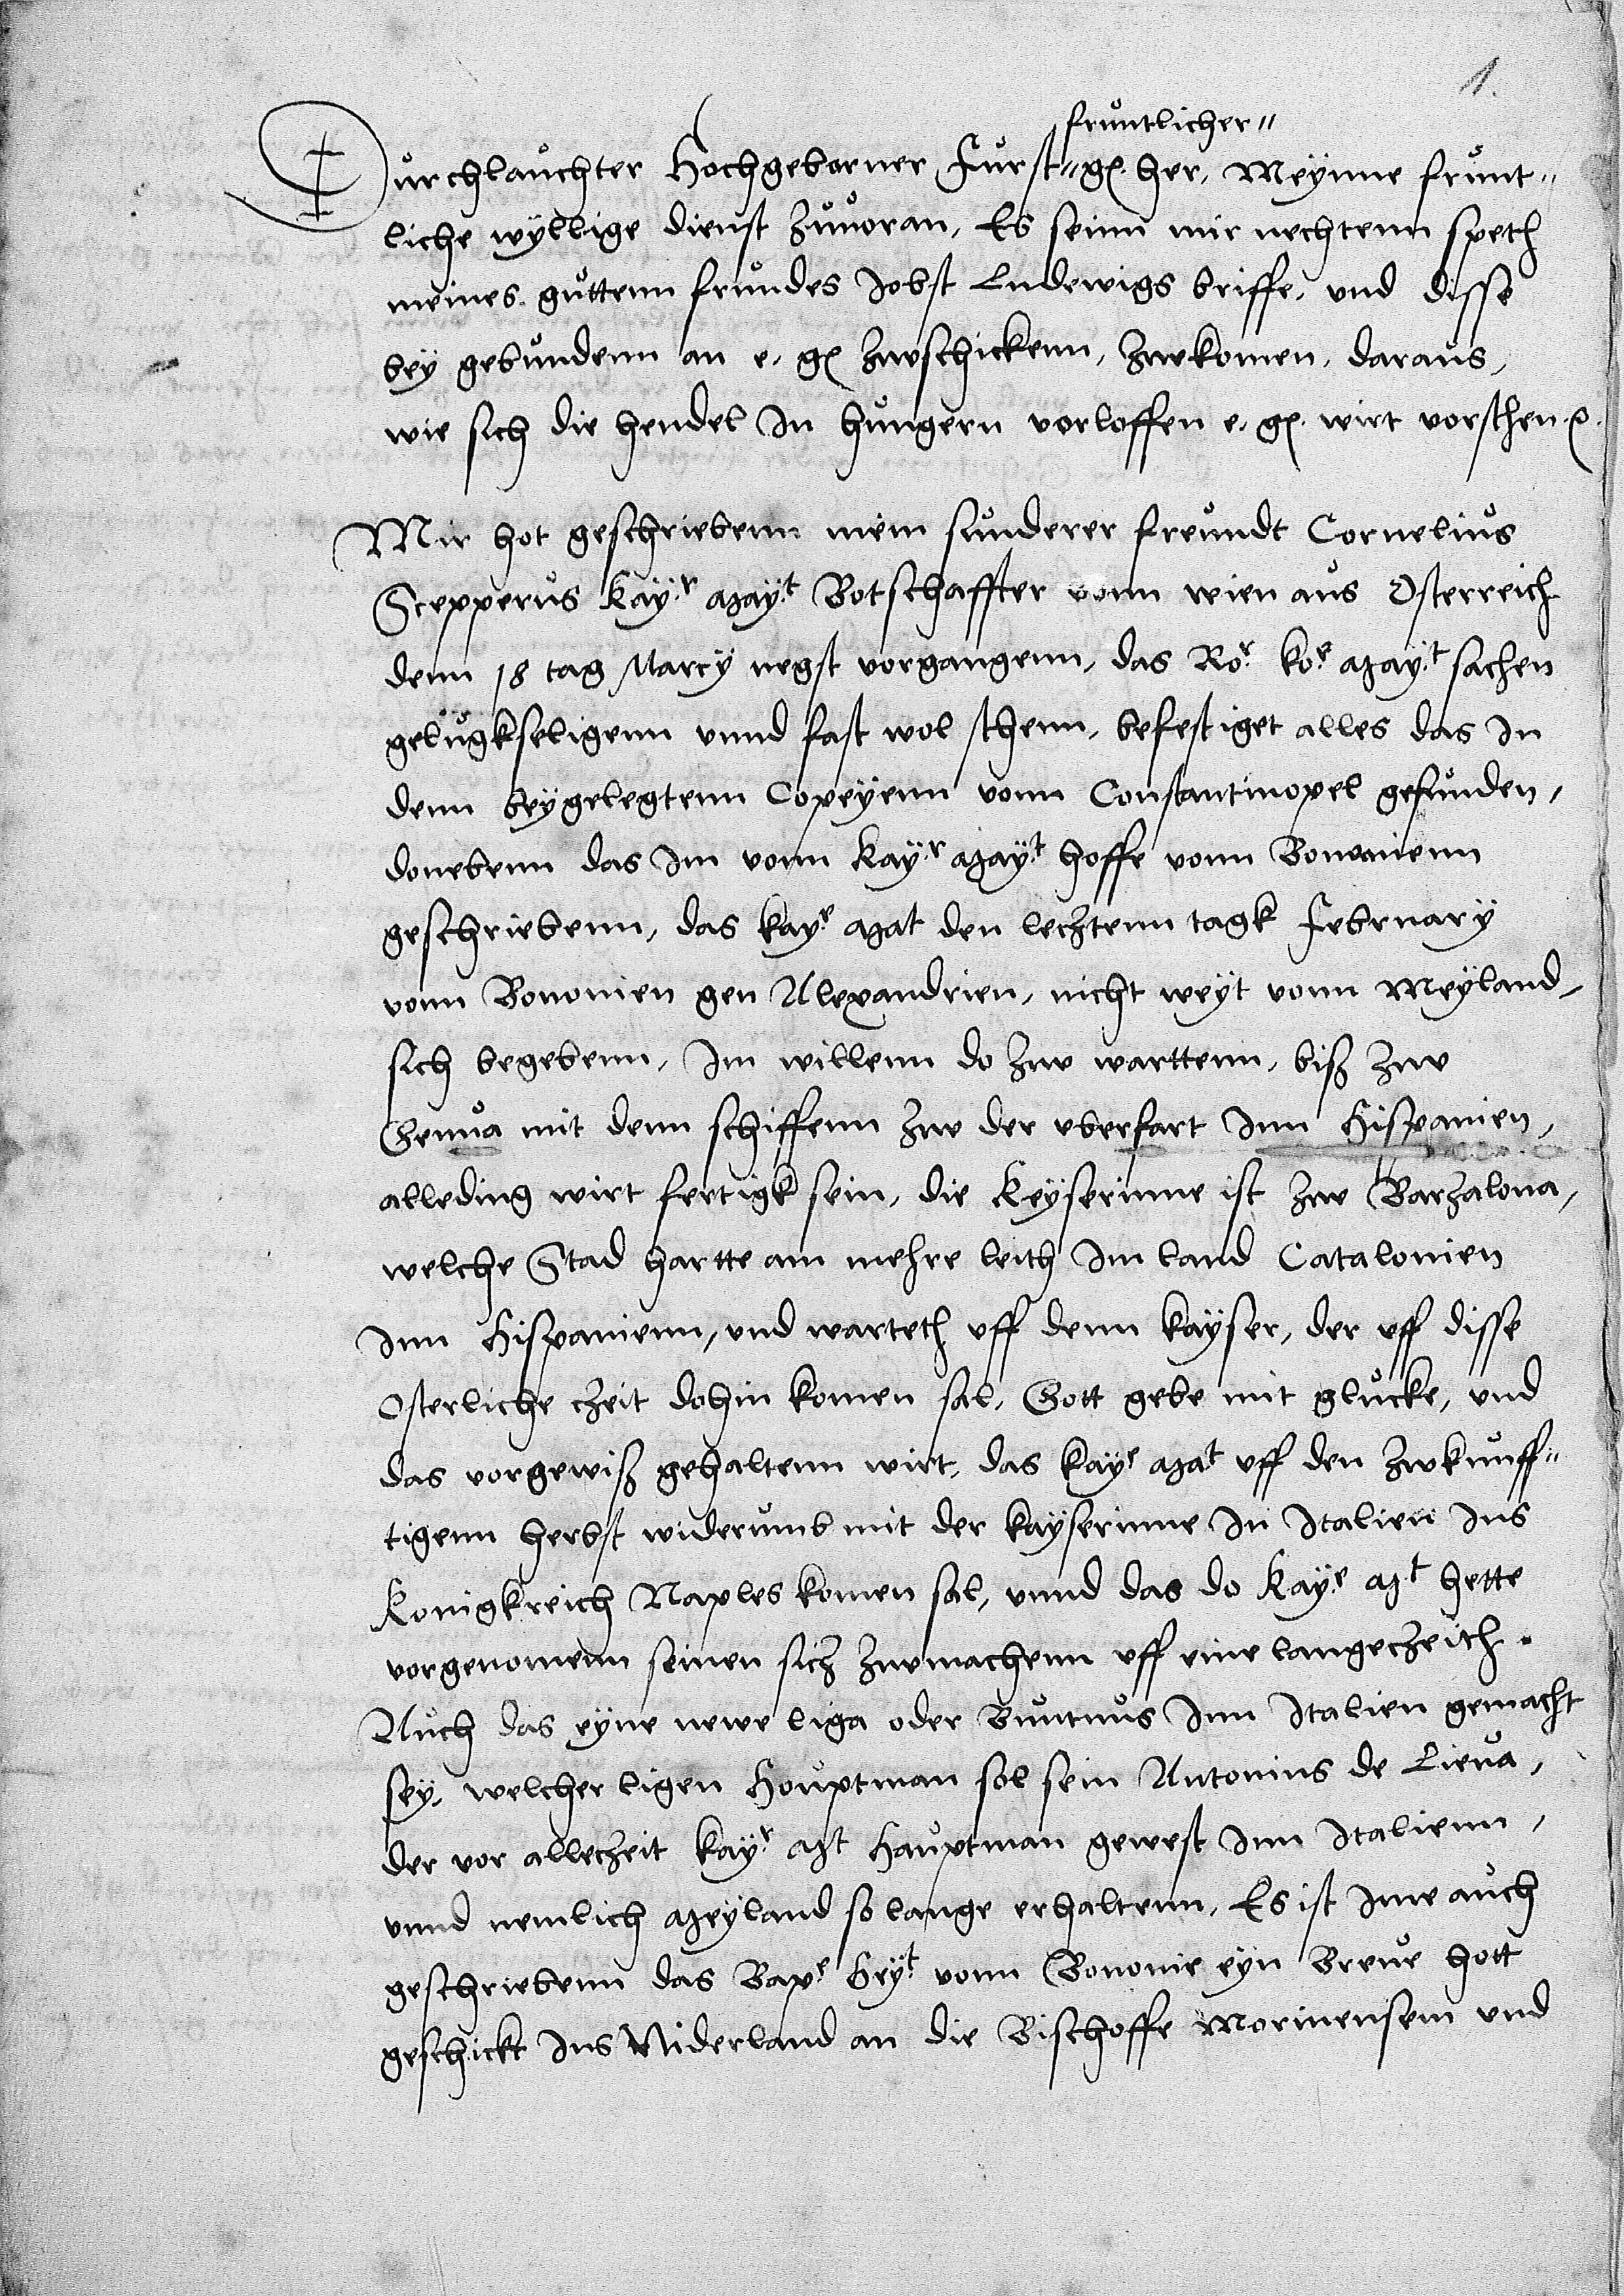 1.
fruntlicher
Durchlauchter Hochgeborner Furst g[her]. her, Meynne frunt-
liche wyllige dienst zuuoran, Es seinn mir nechtenn speth
meines guttenn frundes Jobst Ludewigs briffe, und disse
bey gebundenn an e. g. zwschickenn, zwkomen, daraus,
wie sich die hendel In hungern vorloffen e. g. wirt vorsthen ꝛc.
Mir hot geschriebenn mein sunderer freundt Cornelius
Scepperus Kay.r May.t Botschaffter vonn wien aus Osterreich
denn 18 tag Marcy negst vorgangenn, das Ro.r ko.r May.t sachen
gelugkseligenn vnnd fast wol sthenn, befestiget alles das In
denn beygelegtenn Copeyenn vonn Constantinopel gefunden,
donebenn das Im vonn Kay.r May.t hoffe vonn Bononienn
geschriebenn, das kay.e Mat den lecztenn tagk February
vonn Bononien gen Alexandrien, nicht weyt vonn Meyland,
sich begebenn, Im willenn do zw warttenn, biß zw
Genua mit denn schiffenn zw der vberfart Inn Hispanien,
alleding wirt fertigk sein, die Keyserinne ist zw Barzalona,
welche Stad hartte am mehre leith Im land Catalonien
Inn Hispanienn, und warteth vff denn kayser, der vff disse
Osterliche czeit dohin komen sal, Gott gebe mit glucke, und
das vorgewiß gehaltenn wirt, das kay.e Mat vff den zwkunff-
tigenn herbst widerumb mit der kayserinne In Italien Ins
Konigkreich Naples komen sal, vnnd das do Kay.e Mt hette
vorgenomenn seinen sicz zwmachenn vff eine langeczeith.
Auch das eyne newe liga oder Buntnus Inn Italien gemacht
sey, welcher ligen Houptman sol sein Antonius de Lieua,
der vor alleczeit kay.r Mt Hauptman gewest Inn Italienn,
vnnd nemlich Meyland so lange erhaltenn, Es ist Ime auch
geschriebenn das Bap.e Hey.t vonn Bononie eyn Breue hott
geschickt Ins Niderland an die Bischoffe Morinensem und